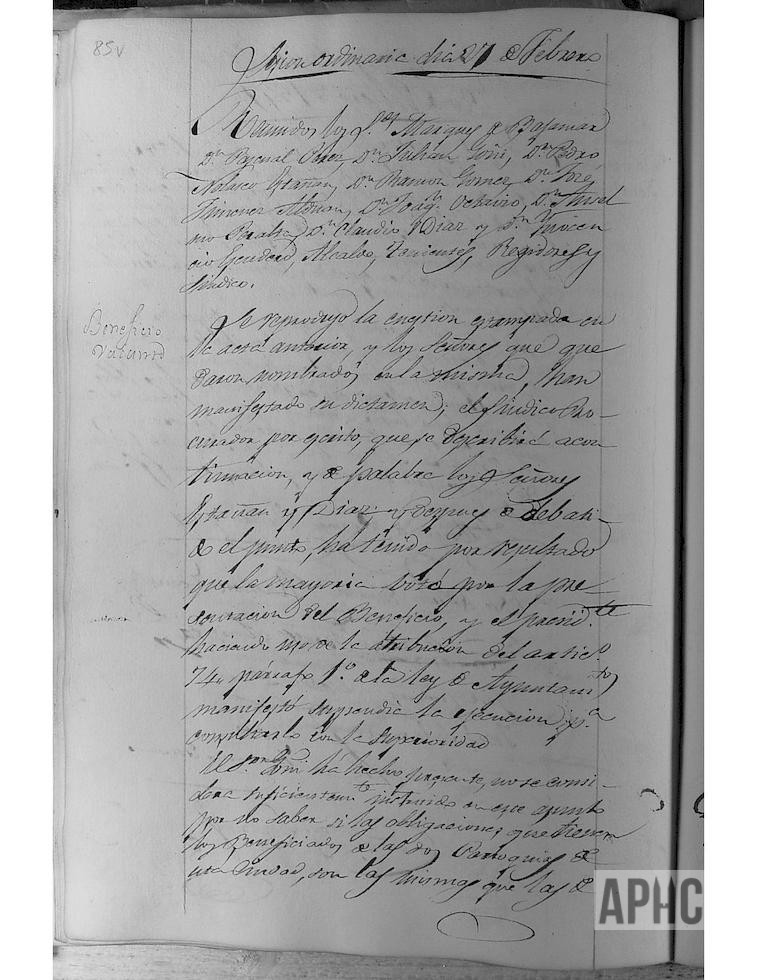 85v
Sesion ordinaria dia 27 de Febrero
Reunidos los S.res Marques de Bajamar
Dn. Pascual Perez, Dn. Julian Goñi, Dn. Pedro
Nolasco Estañan, Dn. Ramon Gomez, Dn. José
Jimenez Dn. Joaqn. Octavio, Dn. Ansel
mo Peralta, Dn. Claudio Diaz y Dn. Inocen
cio Escudero, Alcalde, Tenientes, Regidores y
Sindico.
Beneficio
Vacante
Se reprodujo la cuestion estampada en
la acta anterior, y los Señores que que
daron nombrados en la misma, han
manifestado su dictamen; el Sindico Pro-
curador por escrito, que se describirá a con
tinuacion, y de palabra los Señores
Estañan y Diaz: y despues de debati-
do el punto, ha tenido por resultado
que la mayoria votó por la pre-
sentacion del Beneficio, y el presid.te
haciendo uso de la atribucion del artic.o
74, párrafo 1.o de la ley de Ayuntami.tos
manifestó suspendia la ejecucion p.a
consultarlo con la Superioridad
El S.or Goñi ha hecho presente, no se consi-
dera suficientem.te instruido en este asunto
por no saber si las obligaciones que tienen
los Beneficiados de las dos Parroquias de
esta Ciudad, son las mismas que las de
APHC